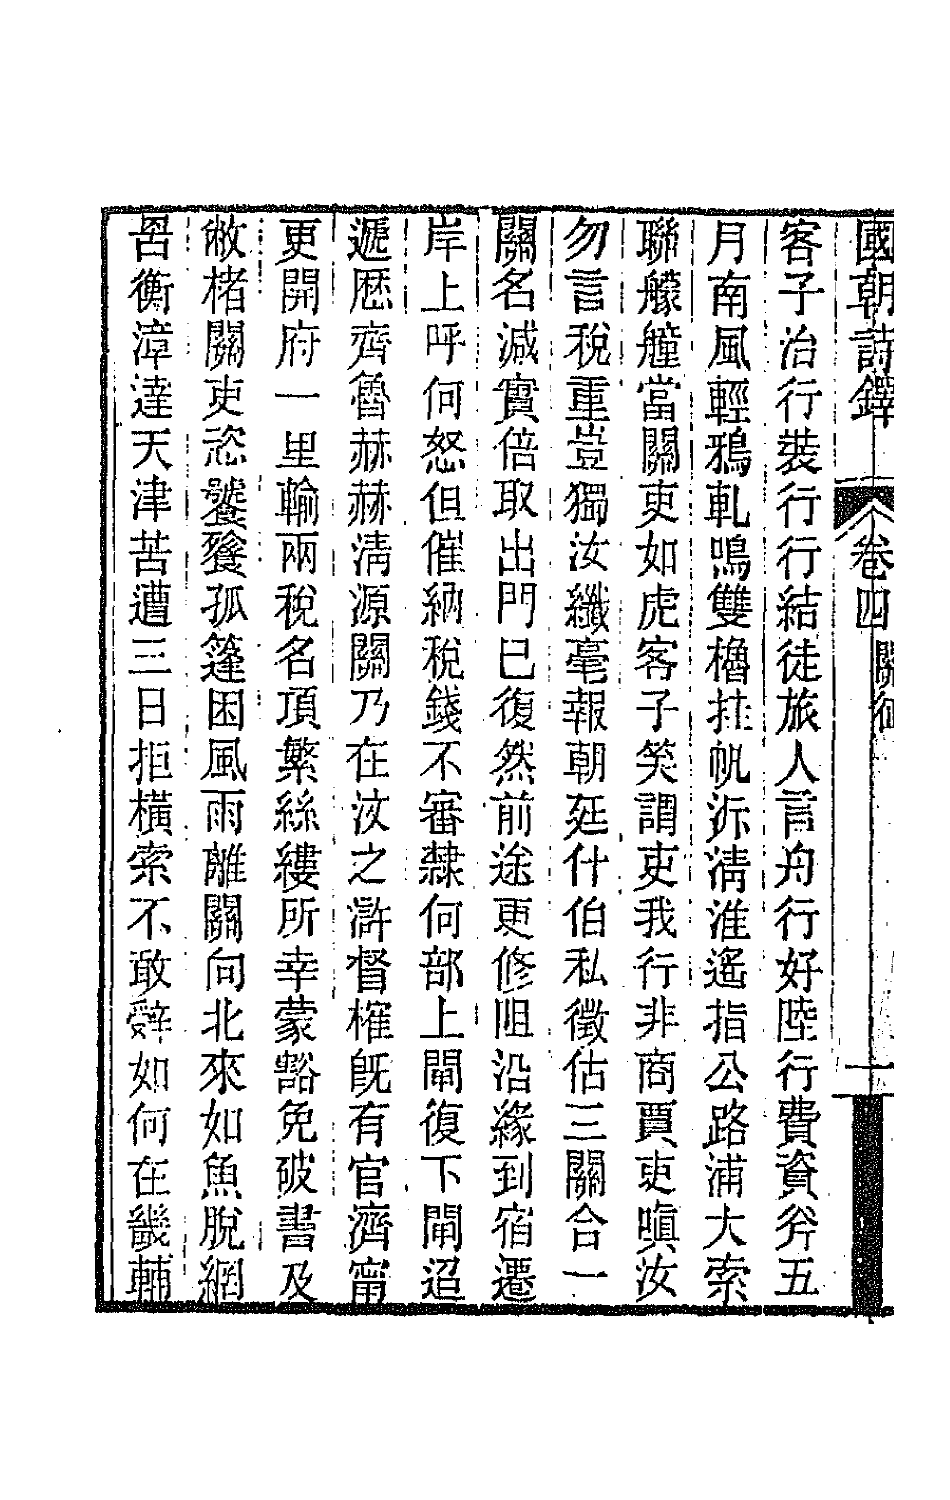 國朝詩鐸 卷四 關征 一
客子治行裝行行結徒旅人言舟行好陸行費資斧五
月南風輕鴉軋鳴雙櫓挂帆泝淸淮遙指公路浦大索
聯艨艟當關吏如虎客子笑謂吏我行非商賈吏嗔汝
勿言稅重豈獨汝纖毫報朝廷什伯私徵估三關合一
關名減實倍取出門已復然前途更修阻沿緣到宿遷
岸上呼何怒但催納稅錢不審隸何部上閘復下閘迢
遞歷齊魯赫赫淸源關乃在汶之滸督榷旣有官濟甯
更開府一里輸兩稅名項繁絲縷所幸蒙豁免破書及
敝楮關吏恣饕餮孤篷困風雨離關向北來如魚脫網
罟衡漳達天津苦遭三日拒橫索不敢辭如何在畿輔